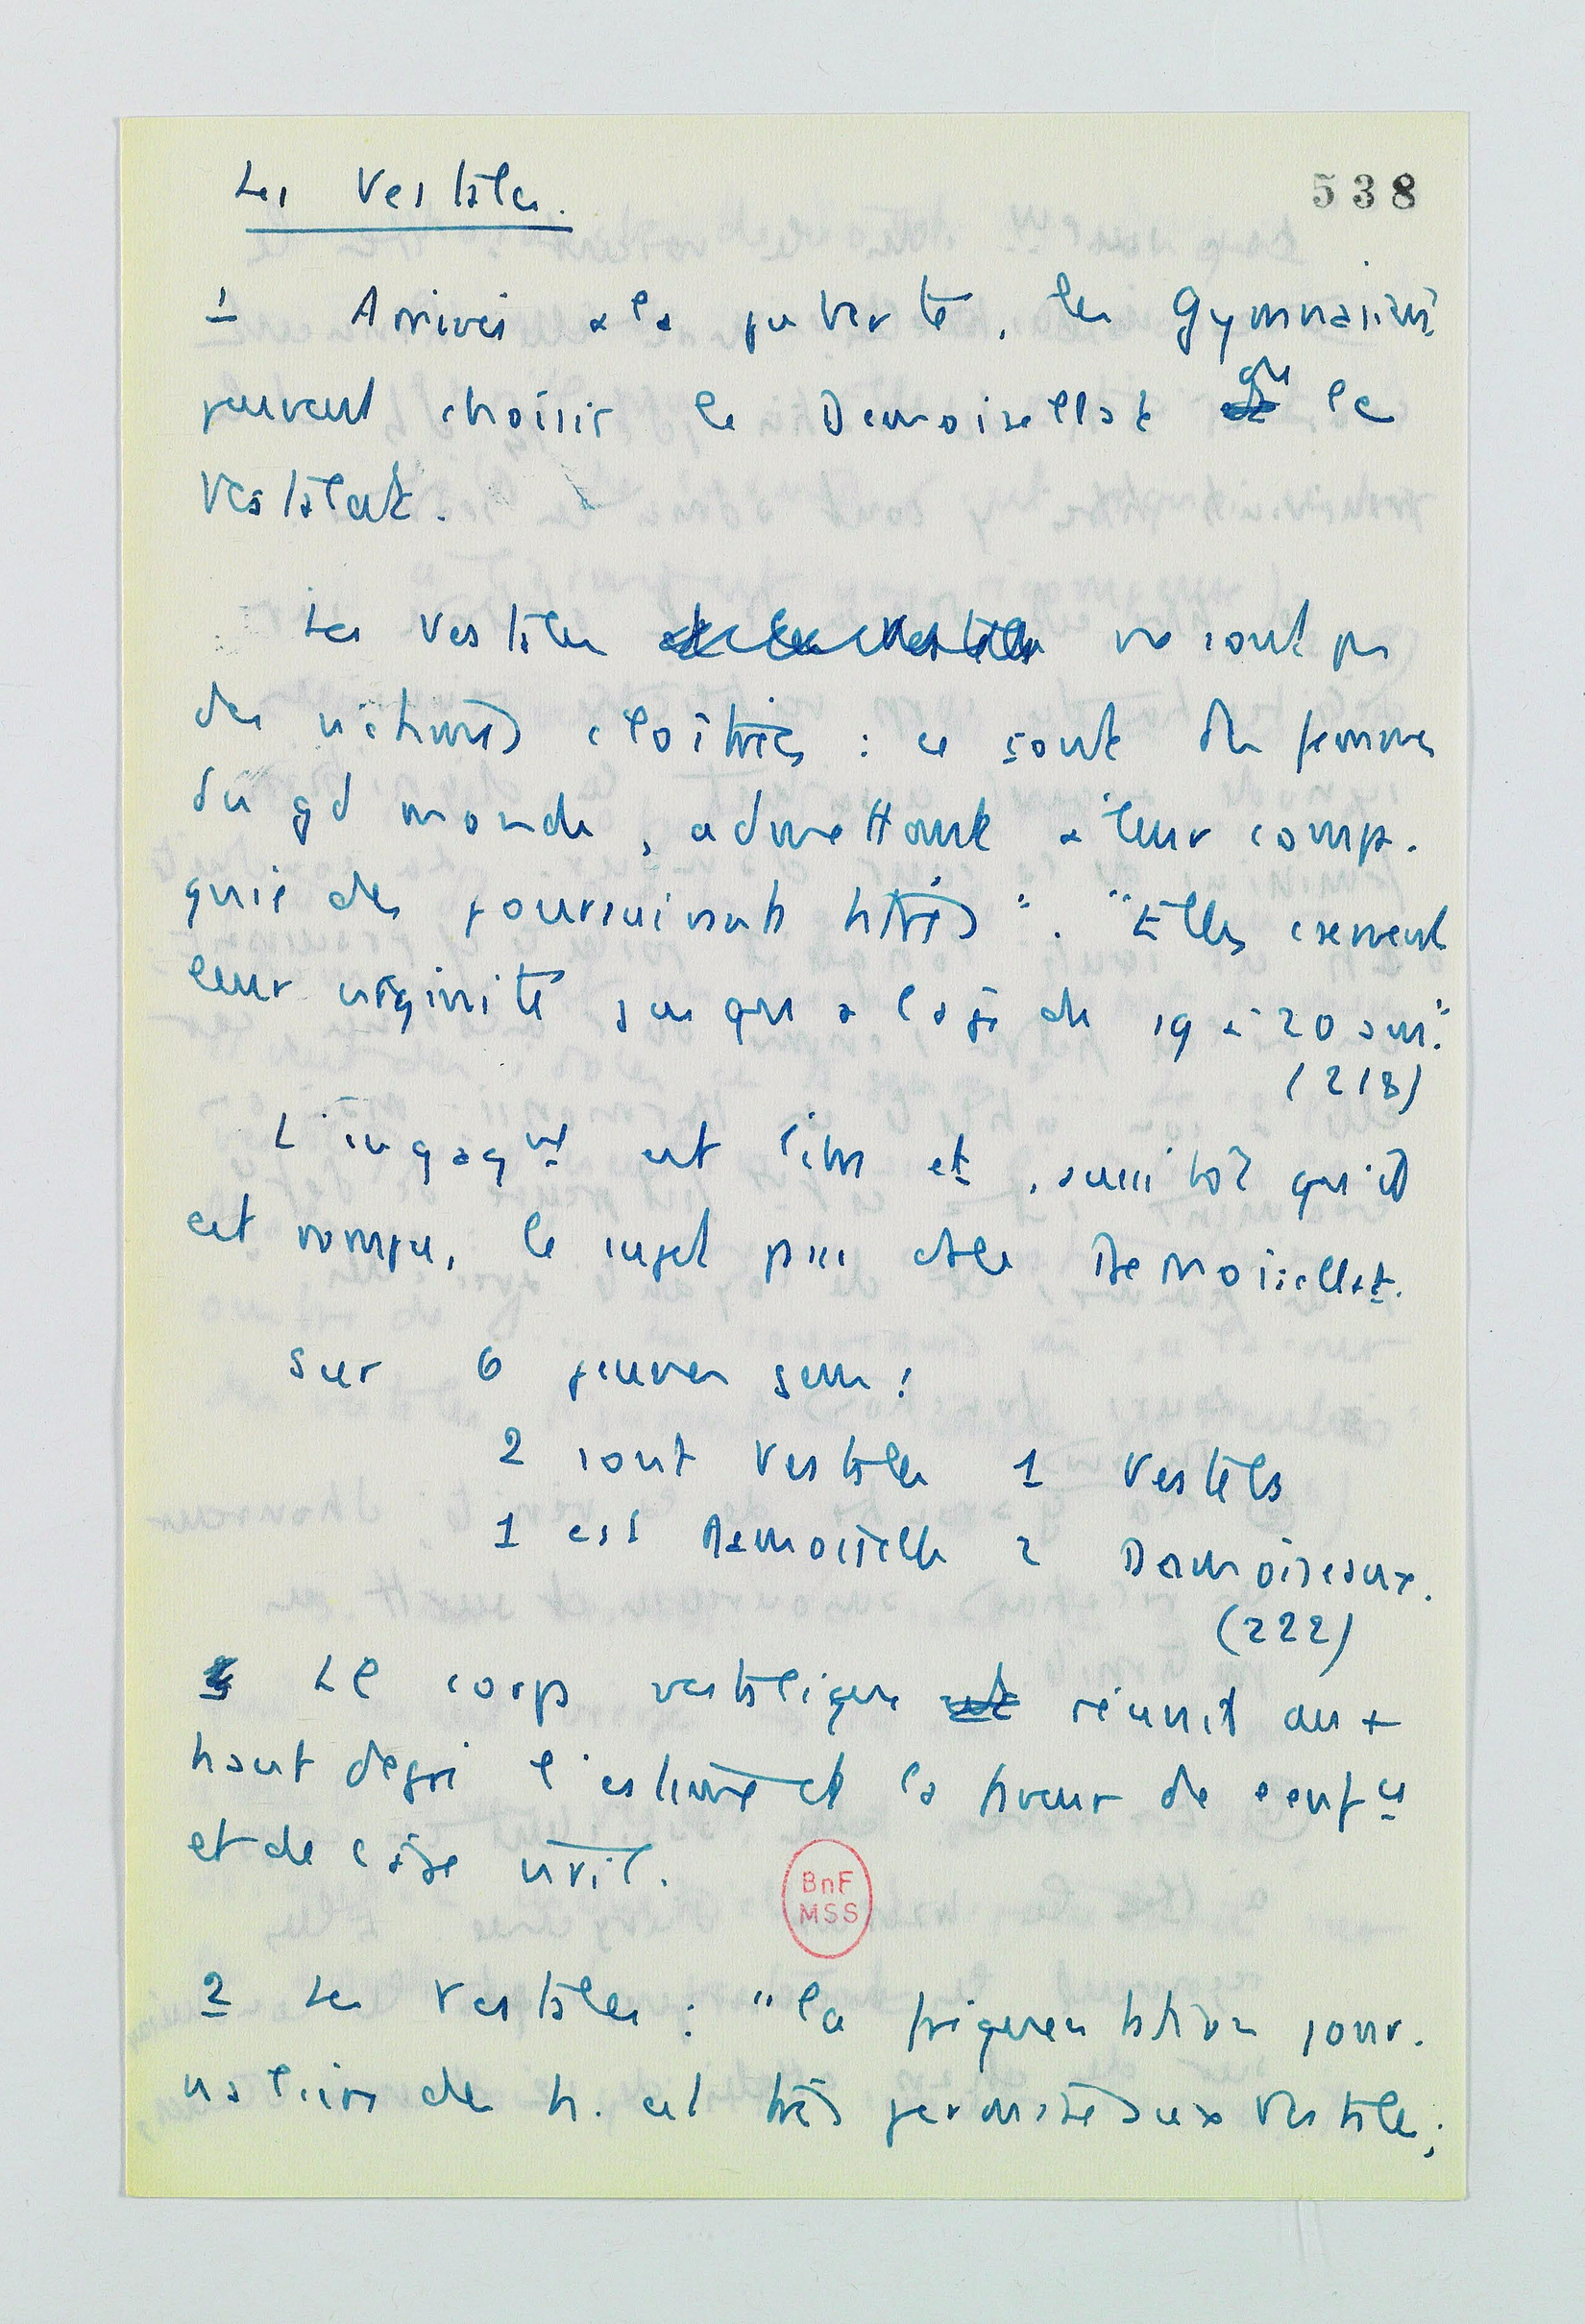 Les Vestales.
538
1 Arrivés à la puberté, les Gymnasiens
peuvent choisir le Damoisellat ou le
Vestalat.
Les Vestales ne sont pas
des victimes cloîtrées : ce sont des femmes
du gd monde, admettant à leur compa-
gnie des poursuivants titrés". "Elles conservent
leur virginité jusqu'à l'âge de 19 à 20 ans".
(218)
L'engagmt est libre et, aussitôt qu'il
est rompu, le sujet passe ds le Damoisellat.
Sur 6 jeunes gens :
2 sont Vestales 1 Vestels
1 est Damoiselle 2 Damoiseaux.
(222)
Le corps vestalique réunit au +
haut degré l'estime et la faveur de l'enfce
et de l'âge viril.
BnF
MSS
2 Les Vestales : "la fréquentation jour-
nalière des h. est très permise aux Vestales;